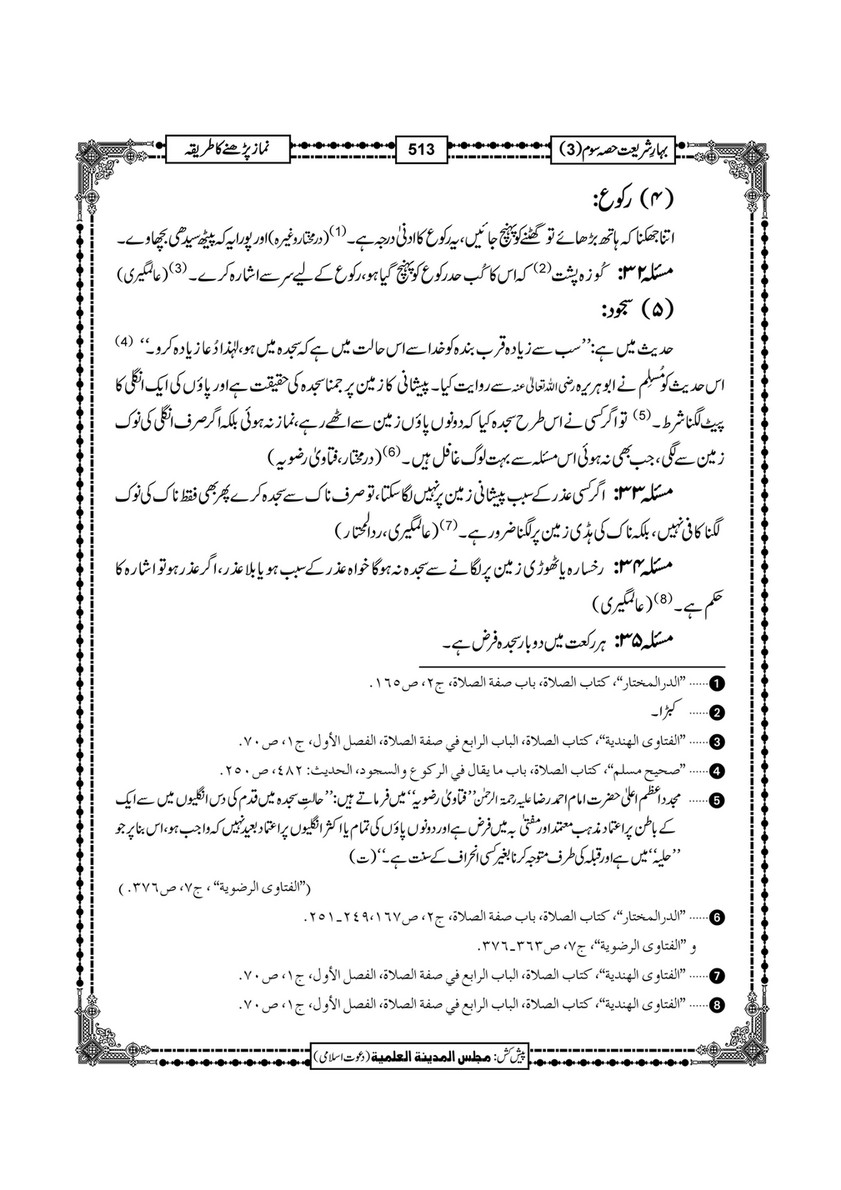 بہارِ شریعت حصہ سوم (3)
513
نماز پڑھنے کا طریقہ
(۴) رکوع:
اتنا جھکنا کہ ہاتھ بڑھائے تو گھٹنے کو پہنچ جائیں، یہ رکوع کا ادنیٰ درجہ ہے۔ (1) (درمختار وغیرہ) اور پورا یہ کہ پیٹھ سیدھی بچھاوے۔
مسئلہ ۳۲: کُوزہ پشت (2) کہ اس کا کُب حد رکوع کو پہنچ گیا ہو، رکوع کے لیے سر سے اشارہ کرے۔ (3) (عالمگیری)
(۵) سجود:
حدیث میں ہے: ’’سب سے زیادہ قرب بندہ کو خدا سے اس حالت میں ہے کہ سجدہ میں ہو، لہٰذا دُعا زیادہ کرو۔‘‘ (4)
اس حدیث کو مُسلِم نے ابوہریرہ رضی اللہ تعالیٰ عنہ سے روایت کیا۔ پیشانی کا زمین پر جمنا سجدہ کی حقیقت ہے اور پاؤں کی ایک انگلی کا
پیٹ لگنا شرط۔ (5) تو اگر کسی نے اس طرح سجدہ کیا کہ دونوں پاؤں زمین سے اٹھے رہے، نماز نہ ہوئی بلکہ اگر صرف انگلی کی نوک
زمین سے لگی، جب بھی نہ ہوئی اس مسئلہ سے بہت لوگ غافل ہیں۔ (6) (درمختار، فتاویٰ رضویہ)
مسئلہ ۳۳: اگر کسی عذر کے سبب پیشانی زمین پر نہیں لگا سکتا، تو صرف ناک سے سجدہ کرے پھر بھی فقط ناک کی نوک
لگنا کافی نہیں، بلکہ ناک کی ہڈی زمین پر لگنا ضرور ہے۔ (7) (عالمگیری، ردالمحتار)
مسئلہ ۳۴: رخسارہ یا ٹھوڑی زمین پر لگانے سے سجدہ نہ ہوگا خواہ عذر کے سبب ہو یا بلا عذر، اگر عذر ہو تو اشارہ کا
حکم ہے۔ (8) (عالمگیری)
مسئلہ ۳۵: ہر رکعت میں دو بار سجدہ فرض ہے۔
1 ...... ’’الدرالمختار‘‘، کتاب الصلاة، باب صفة الصلاة، ج٢، ص١٦٥.
2 ...... کبڑا۔
3 ...... ’’الفتاوی الهندية‘‘، کتاب الصلاة، الباب الرابع في صفة الصلاة، الفصل الأول، ج١، ص٧٠.
4 ...... ’’صحيح مسلم‘‘، کتاب الصلاة، باب ما يقال في الركوع والسجود، الحديث: ٤٨٢، ص٢٥٠.
5 ...... مجدد اعظم اعلیٰ حضرت امام احمد رضا علیہ رحمۃ الرحمٰن ’’فتاویٰ رضویہ‘‘ میں فرماتے ہیں: ’’حالتِ سجدہ میں قدم کی دس انگلیوں میں سے ایک
کے باطن پر اعتماد مذہب معتمد اور مفتیٰ بہ میں فرض ہے اور دونوں پاؤں کی تمام یا اکثر انگلیوں پر اعتماد بعید نہیں کہ واجب ہو، اس بنا پر جو
’’حلیہ‘‘ میں ہے اور قبلہ کی طرف متوجہ کرنا بغیر کسی انحراف کے سنت ہے۔‘‘ (ت)
(’’الفتاوی الرضوية‘‘ ، ج٧، ص٣٧٦. )
6 ...... ’’الدرالمختار‘‘، کتاب الصلاة، باب صفة الصلاة، ج٢، ص١٦٧،٢٤٩۔٢٥١.
و ’’الفتاوی الرضوية‘‘، ج٧، ص٣٦٣۔٣٧٦.
7 ...... ’’الفتاوی الهندية‘‘، کتاب الصلاة، الباب الرابع في صفة الصلاة، الفصل الأول، ج١، ص٧٠.
8 ...... ’’الفتاوی الهندية‘‘، کتاب الصلاة، الباب الرابع في صفة الصلاة، الفصل الأول، ج١، ص٧٠.
پیش کش: مجلس المدينة العلمية (دعوت اسلامی)